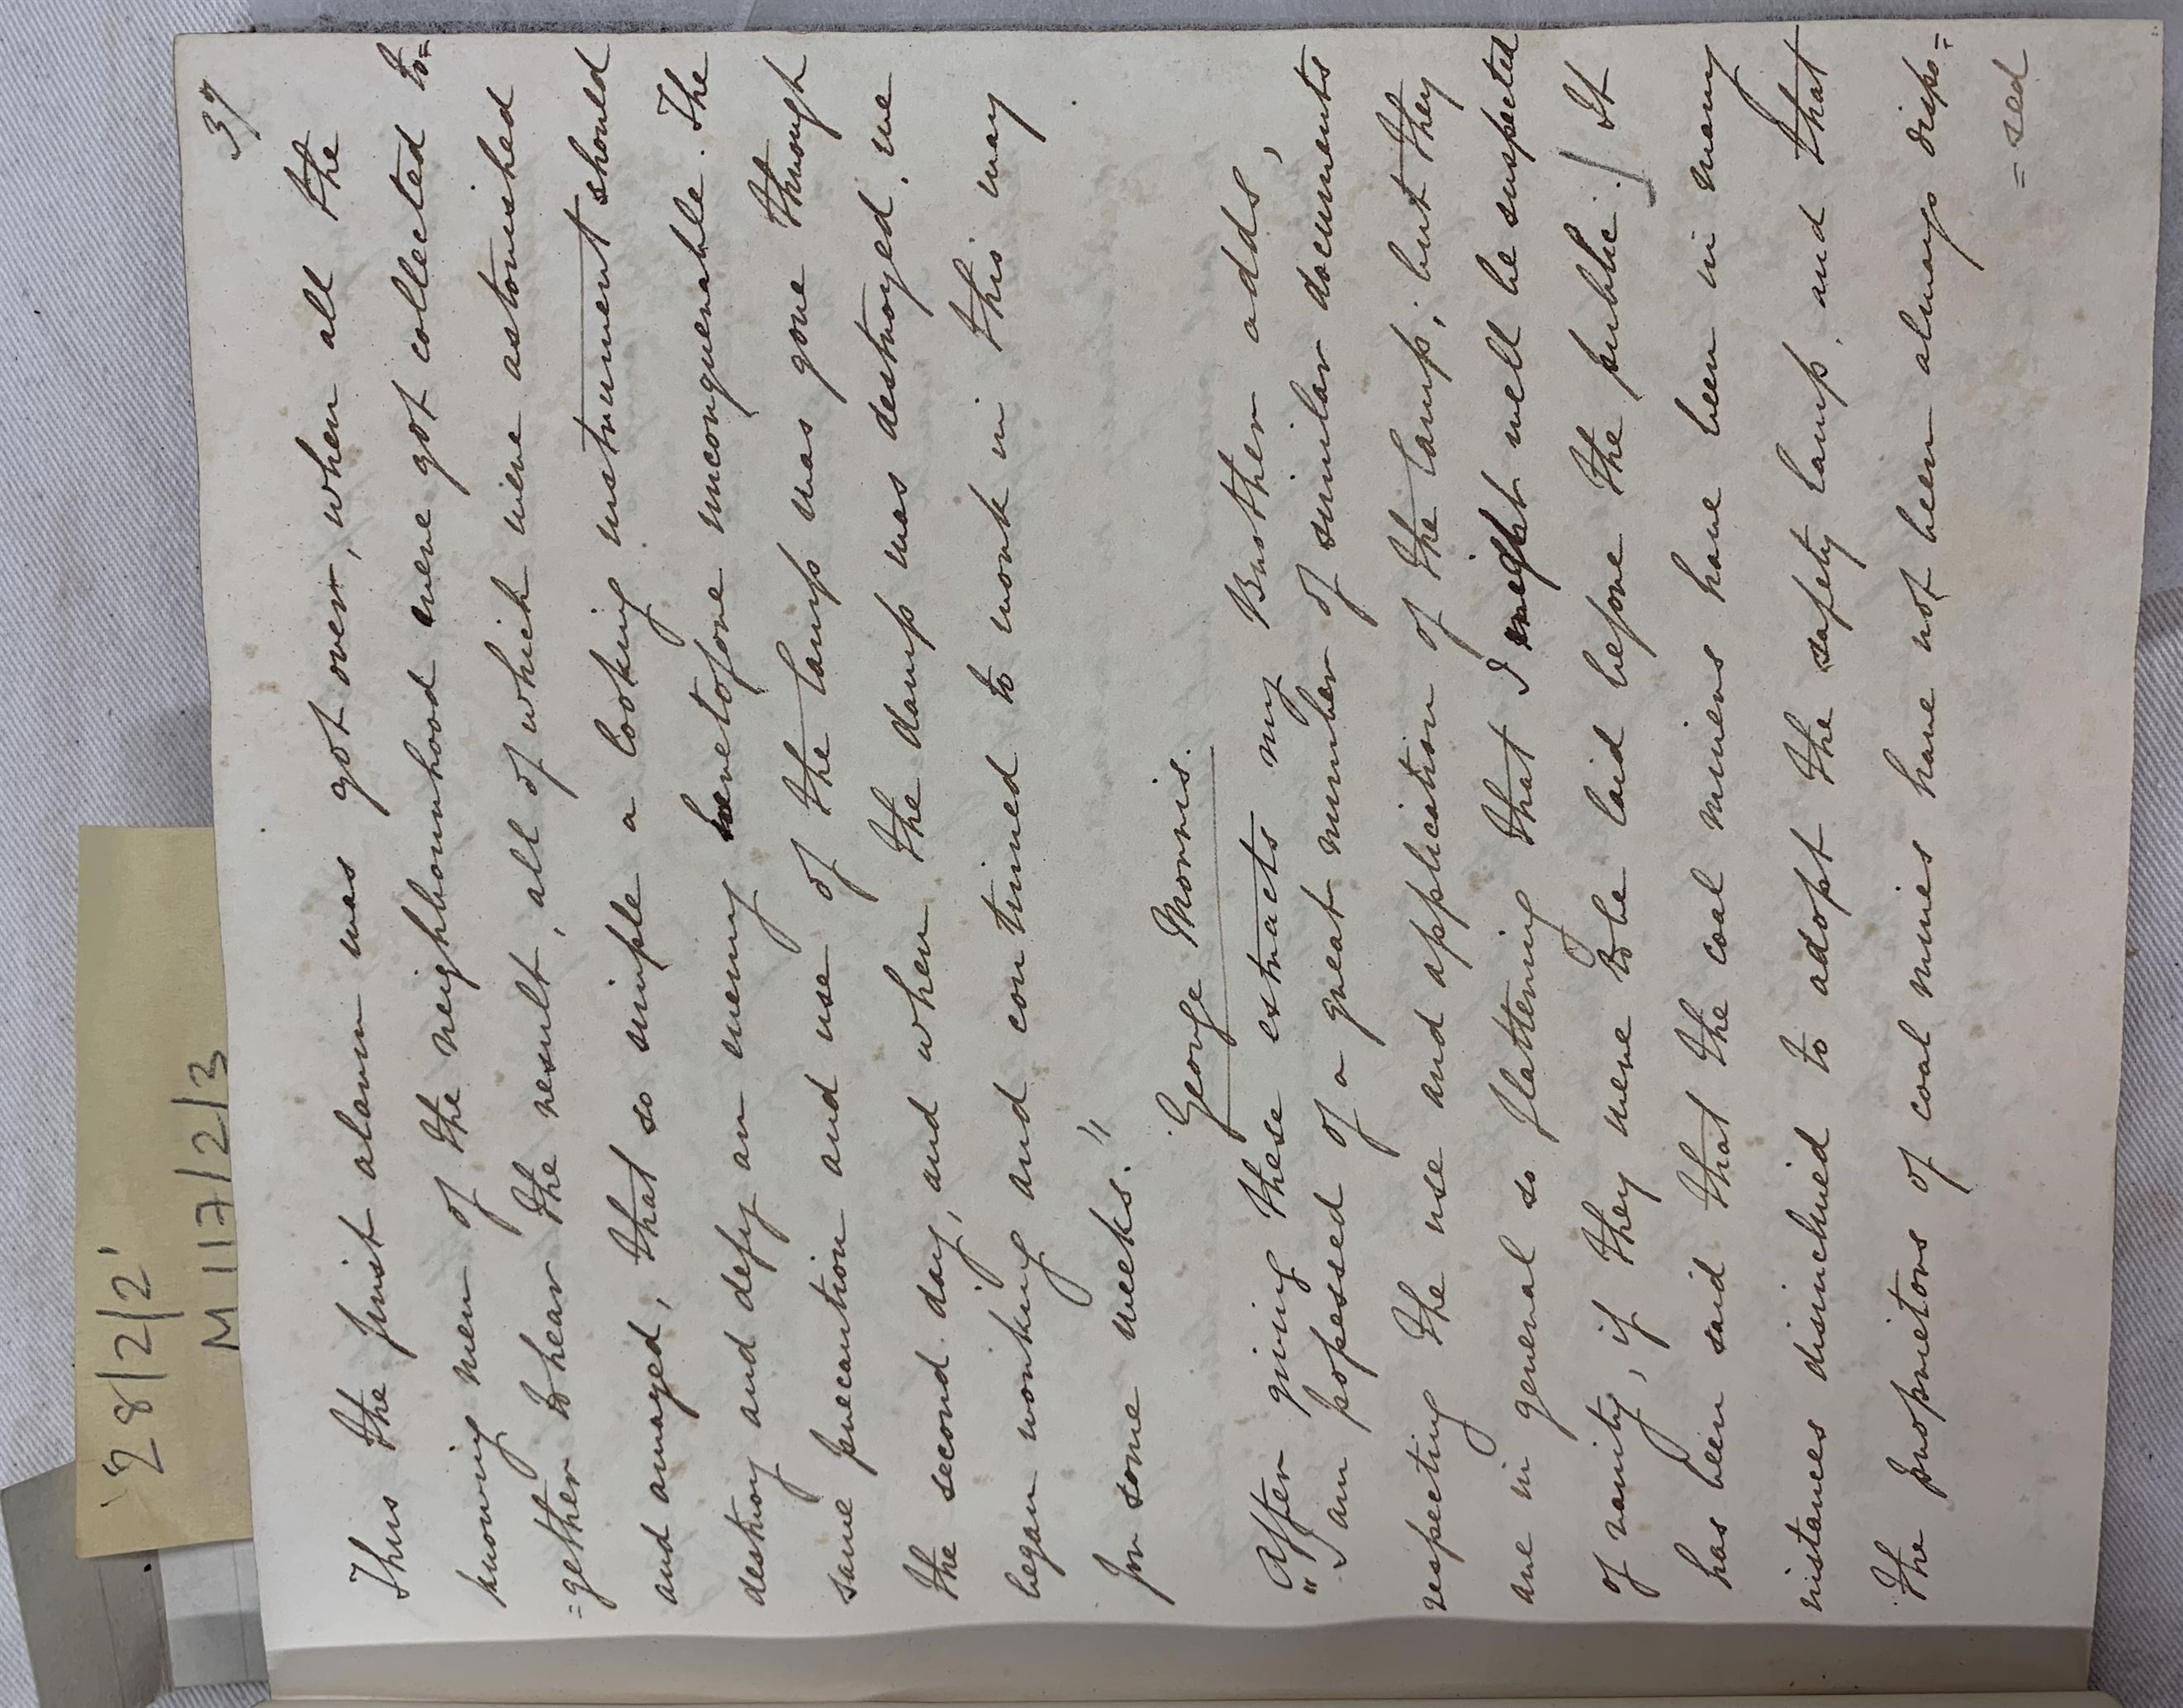 28/2/2'
M117/2/3
37
Thus the first alarm was got over, when all the
knowing men of the neighbourhood were got collected to=
=gether to hear the result, all of which were astonished
and amazed, that so simple a looking instrument should
destroy and defy an enemy heretofore unconquerable. The
same precaution and use of the lamp was gone through
the second day, and when the damp was destroyed, we
began working and continued to work in this way
for some weeks."
George Morris.
After giving these extracts my Brother adds,
"I am possessed of a great number of similar documents
respecting the use and application of the lamp, but they
are in general so flattering that I might well be suspected
of vanity, if they were to be laid before the public./ It
has been said that the coal miners have been in many
instances disinclined to adopt the safety lamp, and that
the proprietors of coal mines have not been always dispo=
=sed